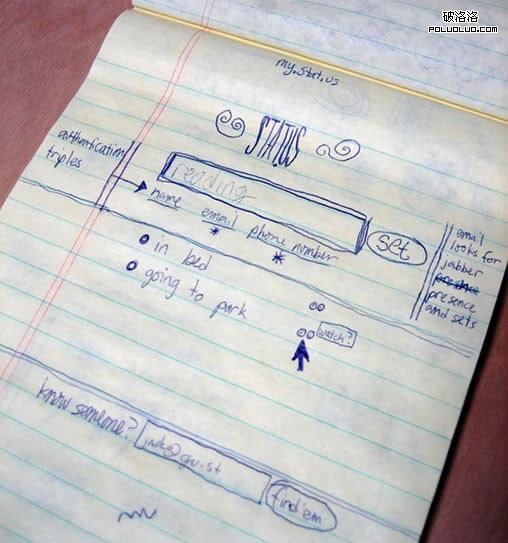 破洛洛
POLUOLUO.COM
my.stat.us
STATUS
authentication
triples
reading
name email phone number
* *
set
email
looks for
jabber
presence
and sets
in bed
going to park
watch?
know someone?
find'em